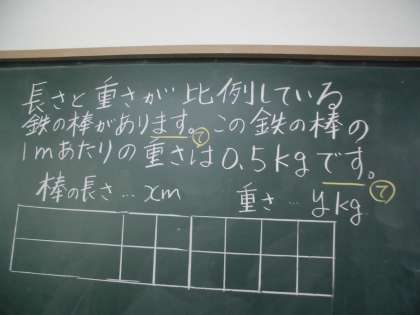 長さと重さが比例している
鉄の棒があります。この鉄の棒の
1mあたりの重さは0.5kgです。
棒の長さ…xm 重さ…ykg